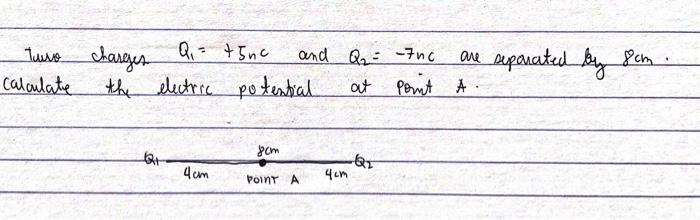 Two charges Q1 = +5nc and Q2 = -7nc are separated by 8cm.
Calculate the electric potential at Point A.
8cm
Q1 Q2
4cm POINT A 4cm